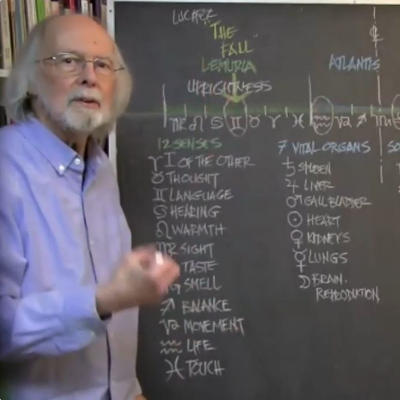 LUCIFER
"THE
FALL"
LEMURIA
UPRIGHTNESS
ATLANTIS
♍ ♌ ♋ ♊ ♉ ♈ ♓ ♒ ♑ ♐ ♏
12 SENSES
♈ I OF THE OTHER
♉ THOUGHT
♊ LANGUAGE
♋ HEARING
♌ WARMTH
♍ SIGHT
TASTE
SMELL
♐ BALANCE
♑ MOVEMENT
♒ LIFE
♓ TOUCH
7 VITAL ORGANS
♄ SPLEEN
♃ LIVER
♂ GALL BLADDER
☉ HEART
♀ KIDNEYS
☿ LUNGS
☽ BRAIN
REPRODUCTION